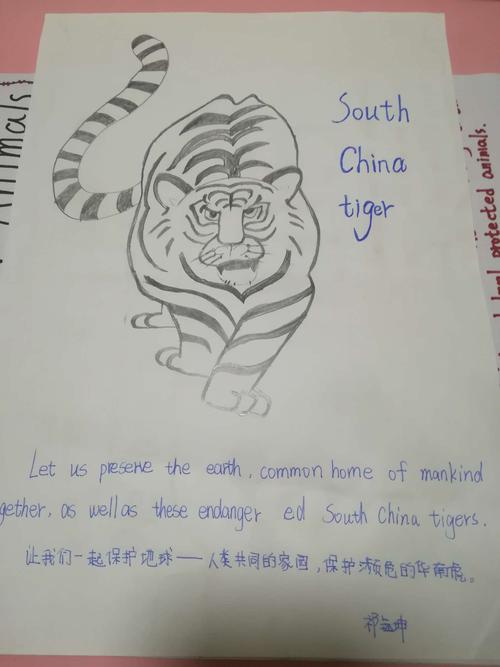 South
China
tiger
Animals
protected animals.
Let us preserve the earth, common home of mankind
gether, as well as these endanger ed South China tigers.
让我们一起保护地球——人类共同的家园,保护濒危的华南虎。